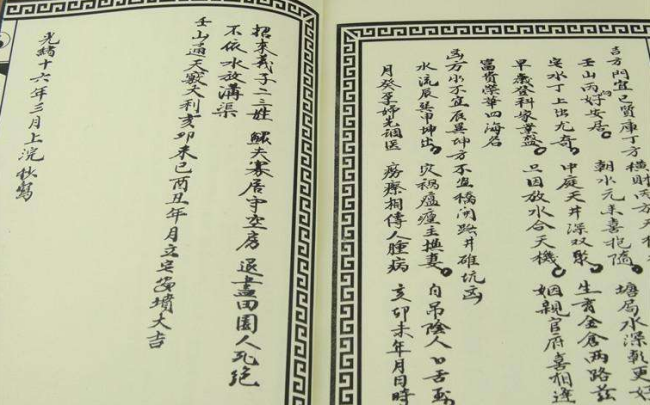 吉方門宜巳巽庫丁方橫財丙方天 塘局水深乾更好
壬山丙向好安居 朝水元來喜抱隨 生育金倉兩路茲
定水丁上出尤奇 中庭天井深双聚 姻親官府喜相逢
早歲登科家業盛 只因放水合天機
富貴榮華四海名
凶方水不宜辰巽坤方不宜橋門路井碓坑凶
水流辰巽甲坤出 灾禍瘟癀主換妻 自吊陰人口舌
月癸孕婦先 医 癆瘵相傳人腫病 亥卯未年月日時
招來義子二三姓 鰥夫寡居守空房 退盡田園人死絕
不依水放溝渠
壬山通天竅大利亥卯未巳酉丑年月立宅安墳大吉
光緒十六年三月上浣秋寫